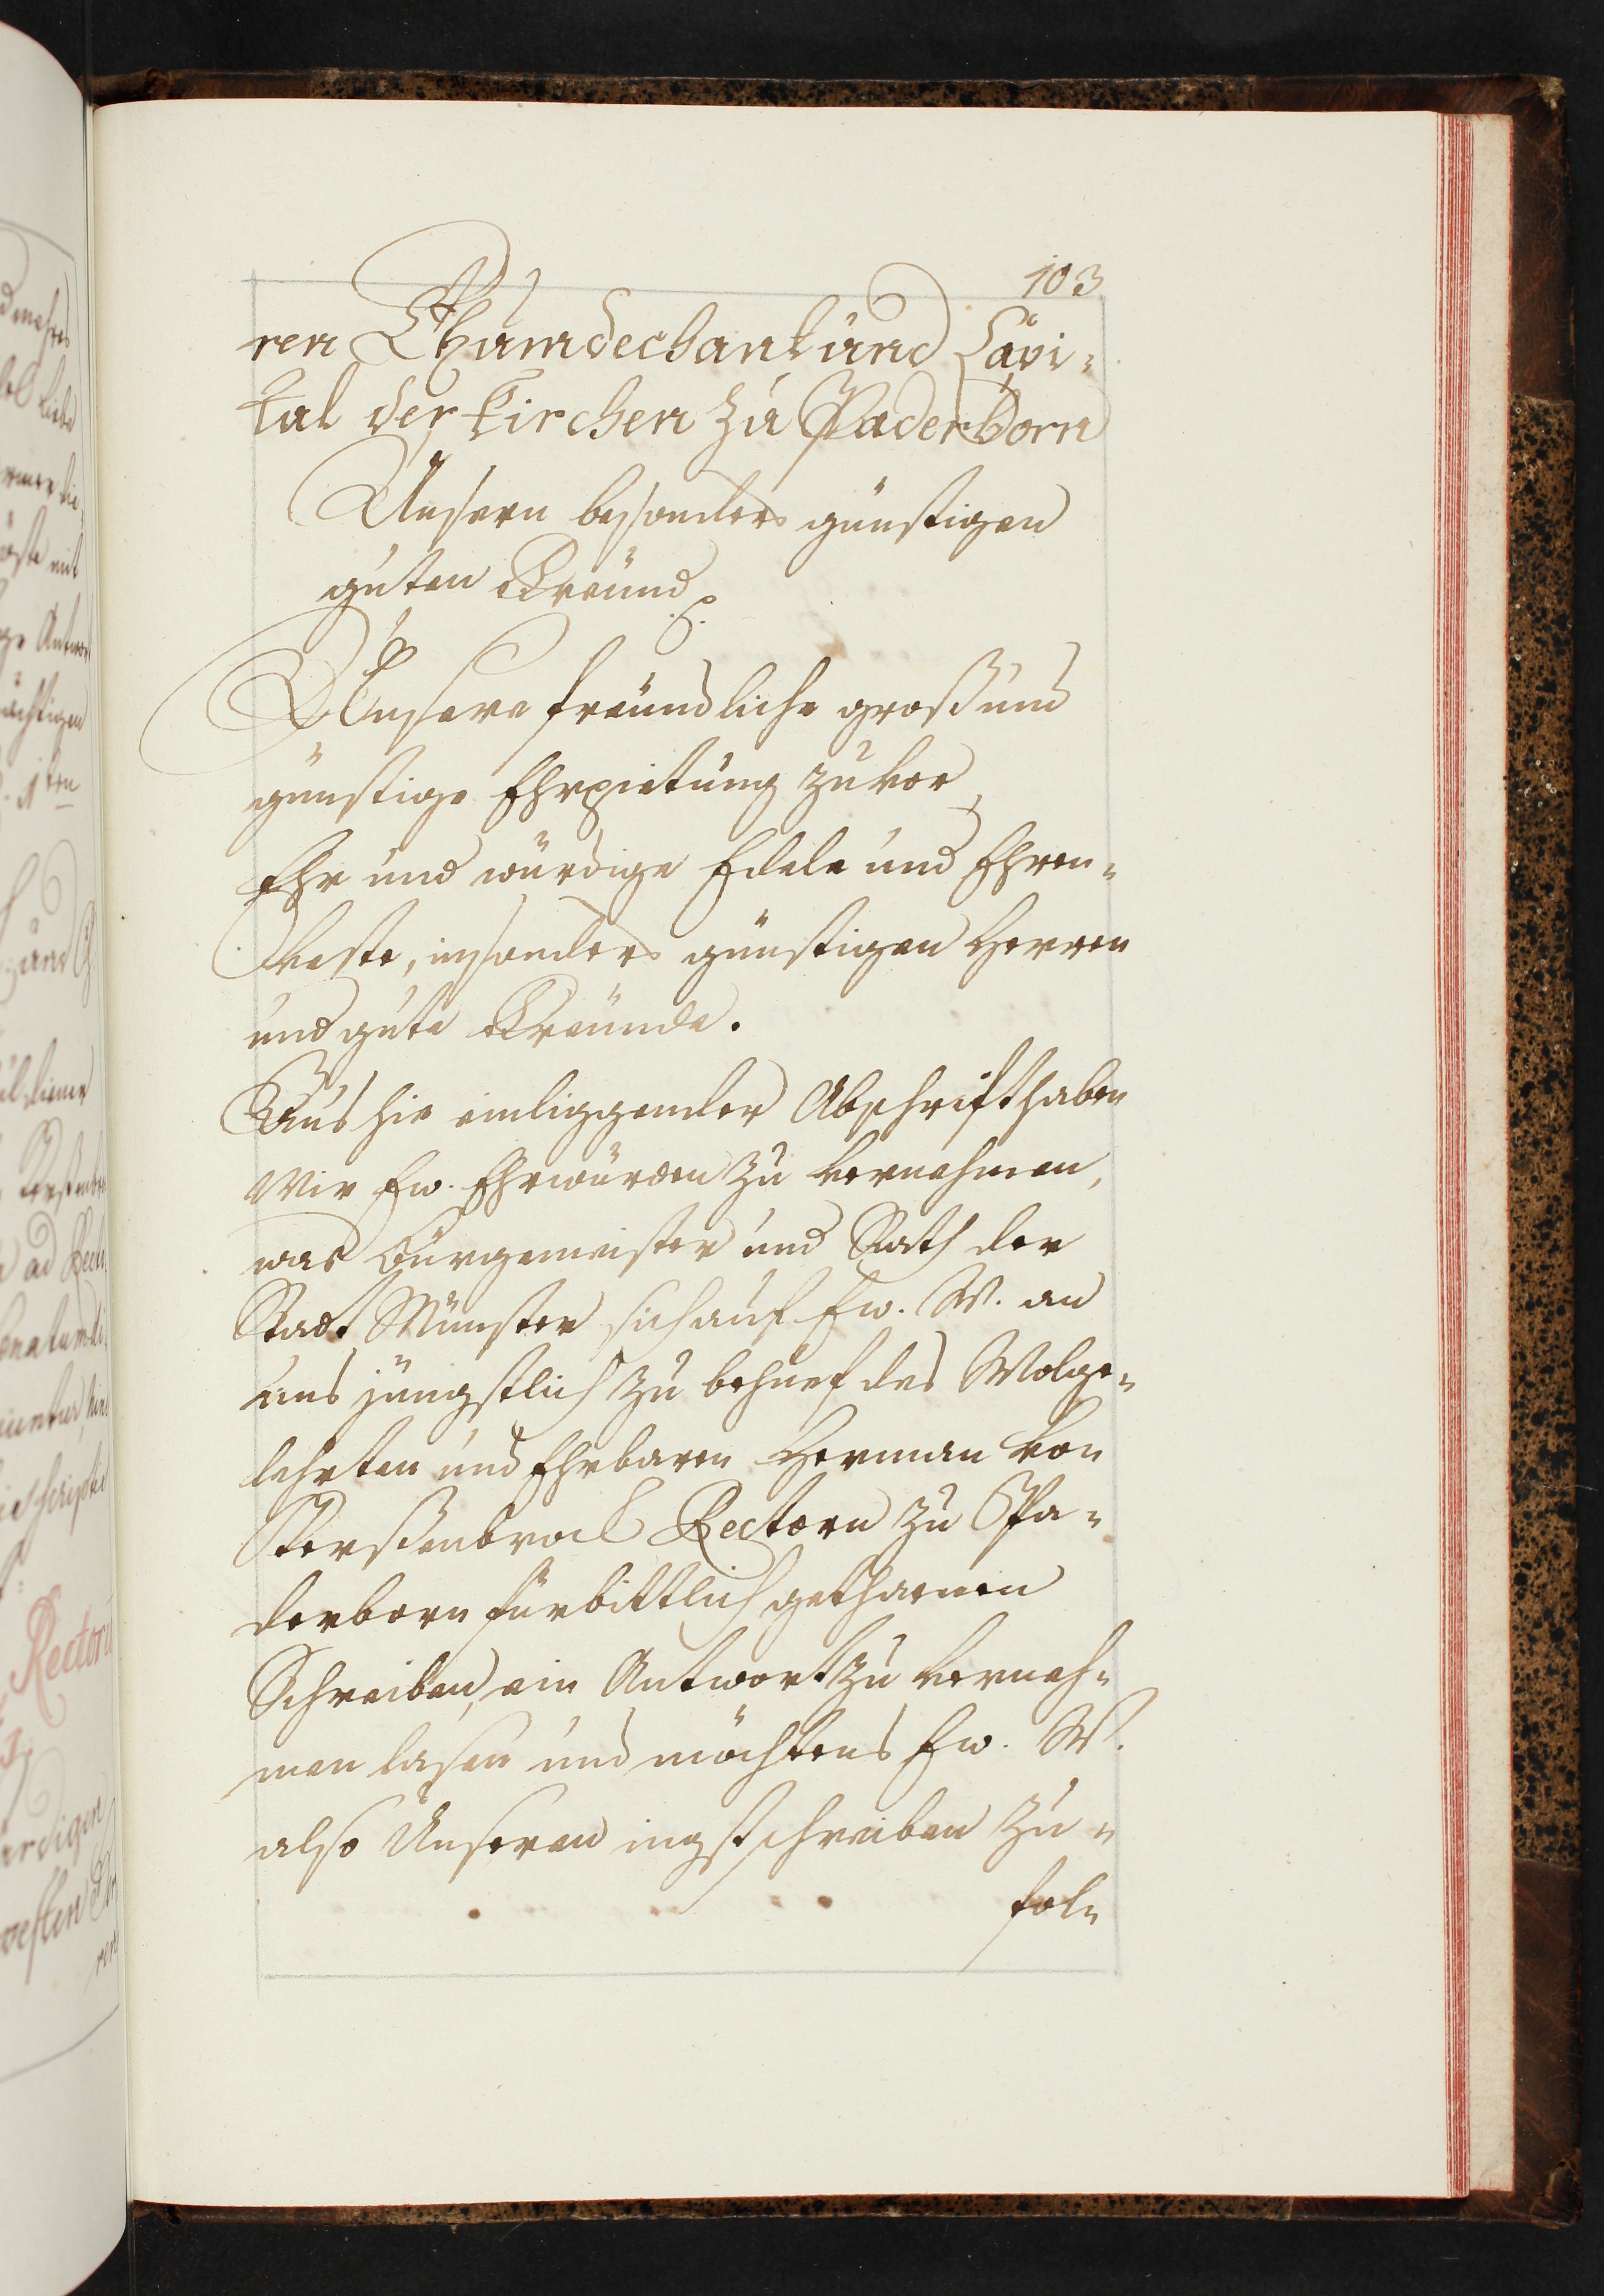 103
ren Thumdechant und Capi-
tal der kirchen zu Paderborn
Unsern besonders günstigen
guten Freund
Unsere freundliche groß und
günstige Ehrpietung zuvor,
Ehr und würdige Edele und Ehren-
veste, insonders günstigen Herren
und gute Freunde.
Aus hie einliggender Abschrift haben
Wir Ew. Ehrwürden zu vernehmen,
was Bürgemeister und Rath der
Stadt Münster sich auf Ew. W. an
uns jüngstlich zu behuef des Wolge-
lehrten und Ehrbaren Herman von
Kerßenbrock Rectorn zu Pa-
derborn fürbittlich gethaenen
Schreiben, ein Antwort zu verneh-
men lasen und möchtens Ew. W.
also Unseren ingst schreiben zu-
fol-